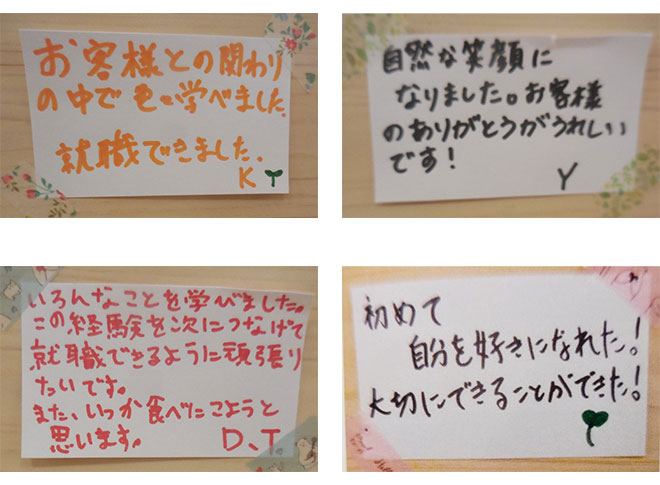 お客様との関わり
の中で色々学べました。
就職できました、
K
自然な笑顔に
なりました。お客様
のありがとうがうれしい
です!
Y
いろんなことを学べました。
この経験を次につなげて
就職できるように頑張り
たいです。
また、いつか食べにこようと
思います。 D、T.
初めて
自分を好きになれた!
大切にできることができた!